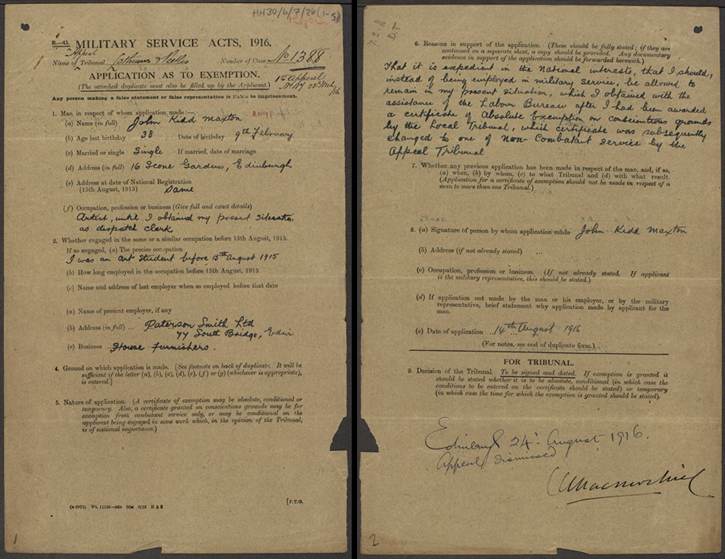 HH30/6/7/20 (1-5)
R.—41.
MILITARY SERVICE ACTS, 1916.
Appeal
Name of Tribunal
Number of Case No 1388
APPLICATION AS TO EXEMPTION.
(The attached duplicate must also be filled up by the Applicant.)
Any person making a false statement or false representation is liable to imprisonment.
1. Man in respect of whom application made:—
(a) Name (in full) John Kidd Maxton
(b) Age last birthday 38 Date of birthday 9th February
(c) Married or single Single If married, date of marriage.
(d) Address (in full) 16 Scone Gardens, Edinburgh
(e) Address at date of National Registration
(15th August, 1915) Same
(f) Occupation, profession or business (Give full and exact details)
Artist, until I obtained my present situation
as despatch clerk
2. Whether engaged in the same or a similar occupation before 15th August, 1915.
If so engaged, (a) The precise occupation
I was an art student before 15th August 1915
(b) How long employed in the occupation before 15th August, 1915
(c) Name and address of last employer when so employed before that date
(a) Name of present employer, if any
(b) Address (in full) ... Paterson Smith Ltd
77 South Bridge, Edin
(c) Business House Furnishers.
4. Ground on which application is made. (See footnote on back of duplicate. It will be
sufficient if the letter (a), (b), (c), (d), (e), (f) or (g) (whichever is appropriate),
is entered.)
5. Nature of application: (A certificate of exemption may be absolute, conditional or
temporary. Also, a certificate granted on conscientious grounds may be for
exemption from combatant service only, or may be conditional on the
applicant being engaged in some work which, in the opinion of the Tribunal,
is of national importance.)
[P.T.O.
1
6. Reasons in support of the application. (These should be fully stated; if they are
continued on a separate sheet, a copy should be provided. Any documentary
evidence in support of the application should be forwarded herewith.)
That it is expedient in the National interests, that I should,
instead of being employed in military service, be allowed to
remain in my present situation, which I obtained with the
assistance of the Labour Bureau after I had been awarded
a certificate of Absolute Exemption on conscientious grounds
by the Local Tribunal, which certificate was subsequently
changed to one of non-Combatant service by the
Appeal Tribunal
7. Whether any previous application has been made in respect of the man, and, if so,
(a) when, (b) by whom, (c) to what Tribunal and (d) with what result.
(Application for a certificate of exemption should not be made in respect of a
man to more than one Tribunal.)
8. (a) Signature of person by whom application made: John Kidd Maxton
(b) Address (if not already stated) ...
(c) Occupation, profession or business. (If not already stated. If applicant
is the military representative, this should be stated.)
(d) If application not made by the man or his employer, or by the military
representative, brief statement why application made by applicant for the
man.
(e) Date of application 14th August 1916
(For notes, see end of duplicate form.)
FOR TRIBUNAL.
9. Decision of the Tribunal. To be signed and dated. If exemption is granted it
should be stated whether it is to be absolute, conditional (in which case
the conditions to be entered on the certificate should be stated) or temporary
(in which case the time for which the exemption is granted should be stated).
Edinburgh 24th August 1916.
Appeal dismissed
2